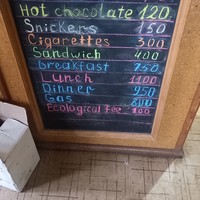 Hot chocolate 120
Snickers 150
Cigarettes 500
Sandwich 400
breakfast 750
Lunch 1100
Dinner 950
Gas 800
Ecological Fee 100